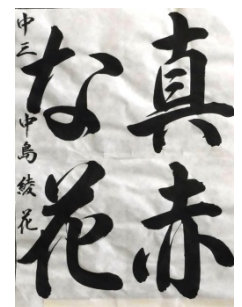 真赤
な花
中三 中島綾花